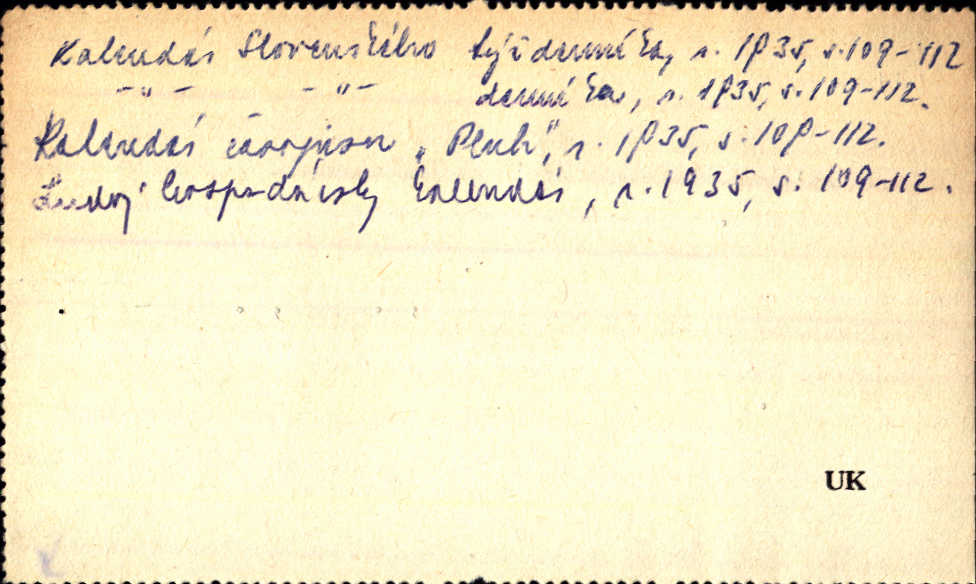 Kalendár Slovenského týždenníka, r. 1935, s. 109-112
-"- -"- denníka, r. 1935, s. 109-112.
Kalendár časopisu "Pluh", r. 1935, s. 109-112.
hospodársky kalendár, r. 1935, s. 109-112.
UK